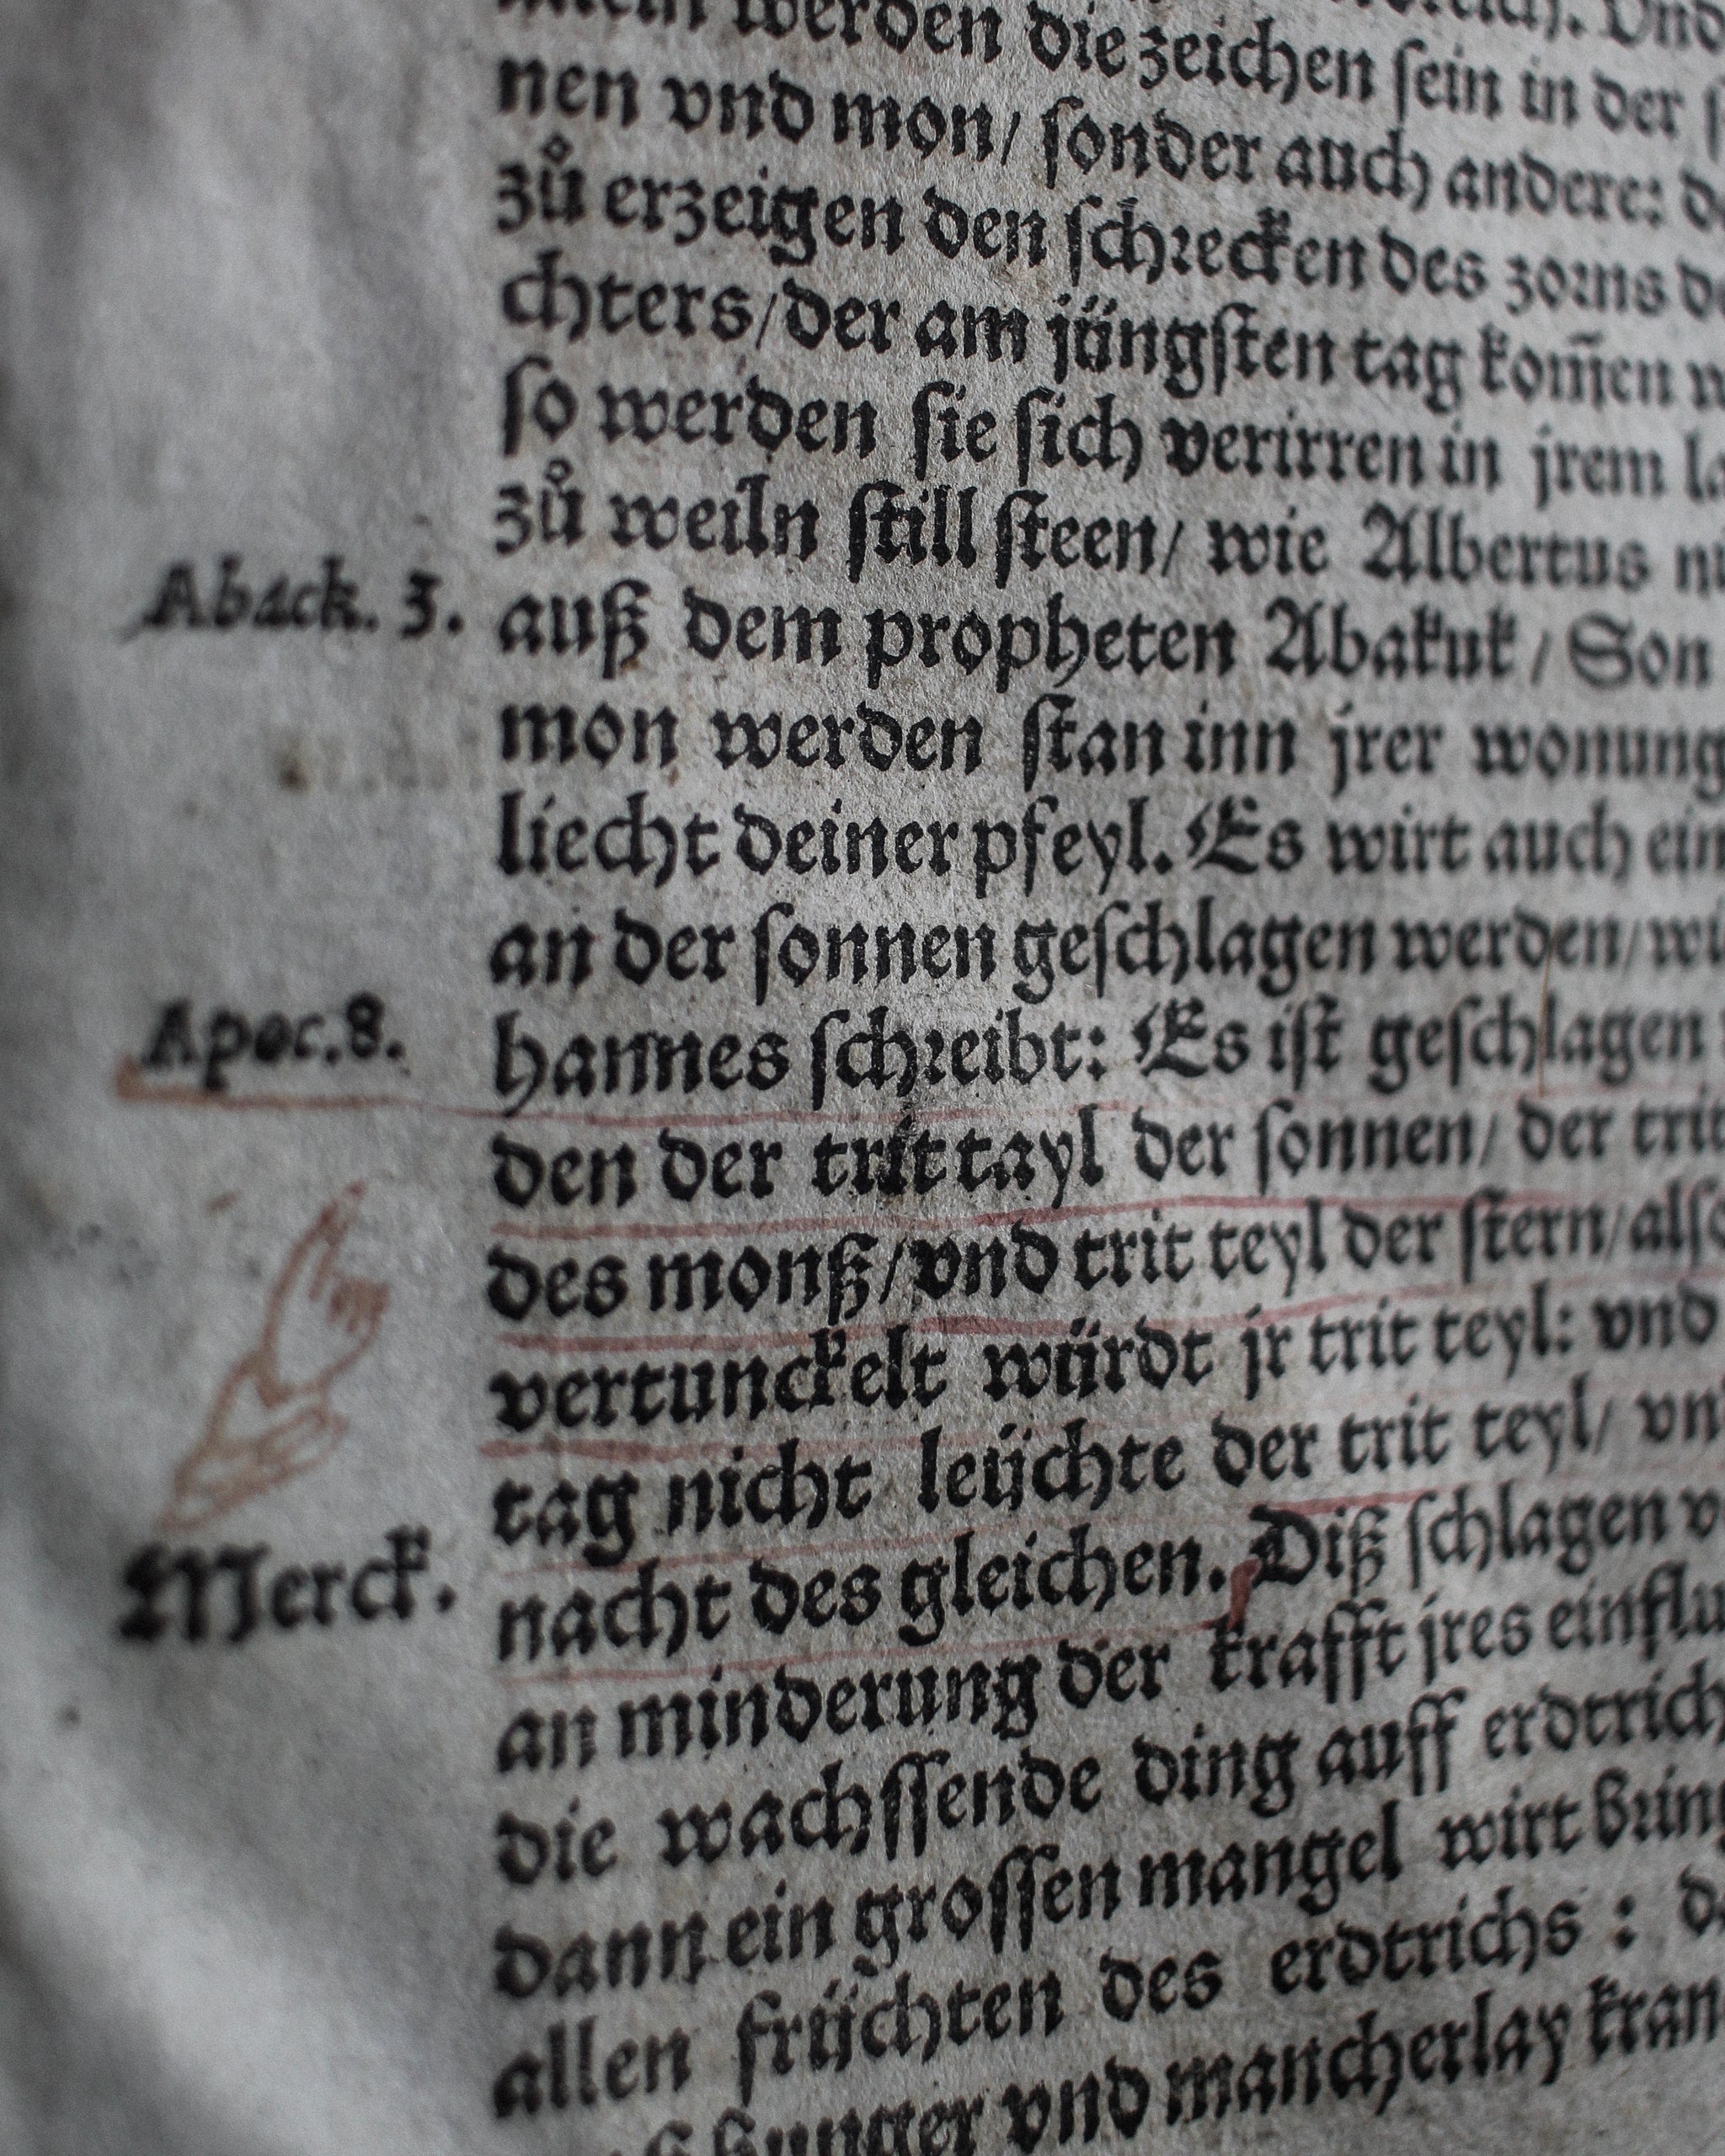 werden die zeichen sein in der
nen vnd mon/ sonder auch andere:
zů erzeigen den schrecken des zorns
chters/ der am jüngsten tag kom̃en
so werden sie sich verirren in jrem
zů weiln still steen/ wie Albertus
Aback. 3. auß dem propheten Abakuk / Son
mon werden stan inn jrer wonung
liecht deiner pfeyl. Es wirt auch ein
an der sonnen geschlagen werden/
Apoc. 8. hannes schreibt: Es ist geschlagen
den der trit tayl der sonnen/ der trit
des monß/ vnd trit teyl der stern/
vertunckelt würdt jr trit teyl: vnd
tag nicht leüchte der trit teyl/
Merck. nacht des gleichen. Diß schlagen
an minderung der krafft jres
die wachssende ding auff
dann ein grossen mangel wirt
allen früchten des erdtrichs :
hunger vnd mancherlay